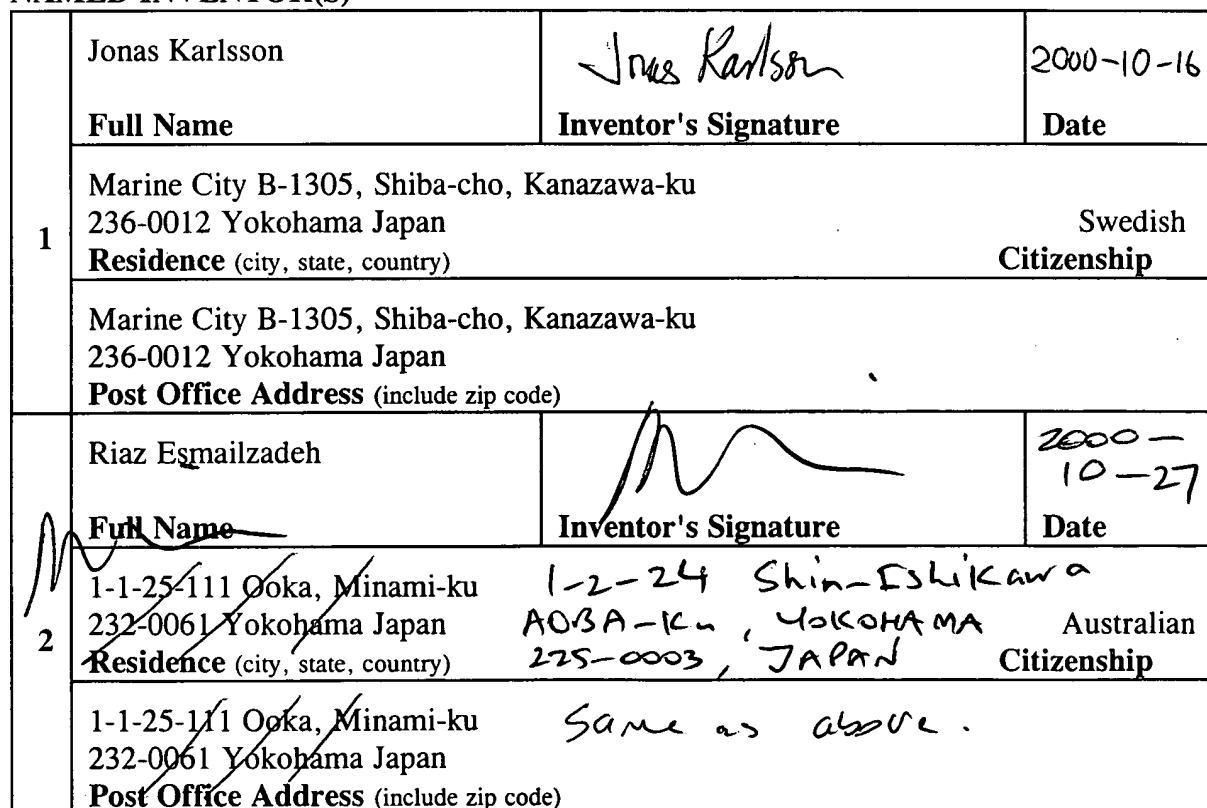 NAMED INVENTOR(S)
1
Jonas Karlsson
Full Name
Jonas Karlsson
Inventor's Signature
2000-10-16
Date
Marine City B-1305, Shiba-cho, Kanazawa-ku
236-0012 Yokohama Japan
Swedish
Residence (city, state, country)
Citizenship
Marine City B-1305, Shiba-cho, Kanazawa-ku
236-0012 Yokohama Japan
Post Office Address (include zip code)
2
Riaz Esmailzadeh
Full Name
Inventor's Signature
2000-
10-27
Date
1-1-25-111 Ooka, Minami-ku
232-0061 Yokohama Japan
Residence (city, state, country)
1-2-24 Shin-Ishikawa
AOBA-Ku, YOKOHAMA
225-0003, JAPAN
Australian
Citizenship
1-1-25-111 Ooka, Minami-ku
232-0061 Yokohama Japan
Post Office Address (include zip code)
Same as above.